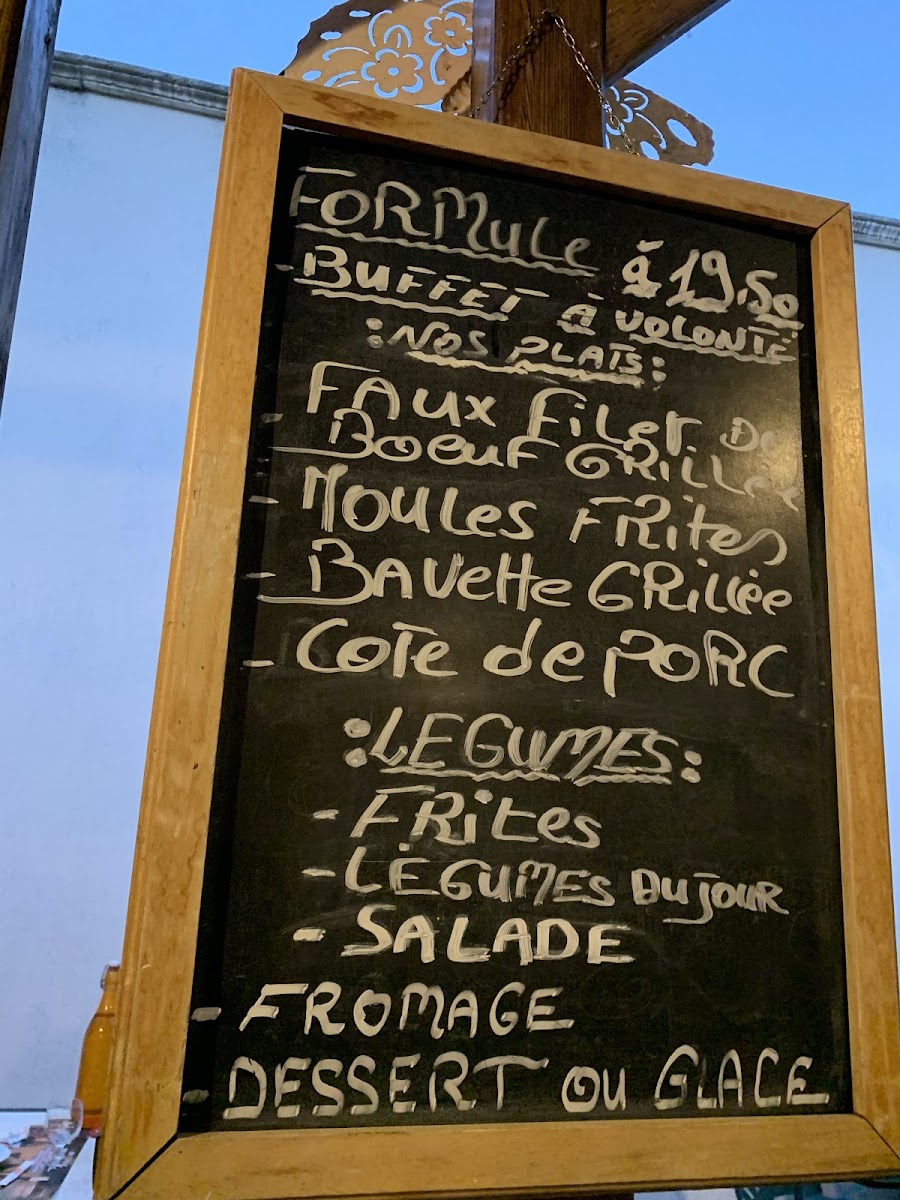 FORMULE à 19.50
- BUFFET A VOLONTE
: NOS PLATS :
- FAUX FiLET De
BOEUF GRiLLée
- MOULES FRites
- BAVette GRillée
- COTE de PORC
: LEGUMES :
- FRites
- LÉGUMES DU JOUR
- SALADE
- FROMAGE
- DESSERT OU GLACE